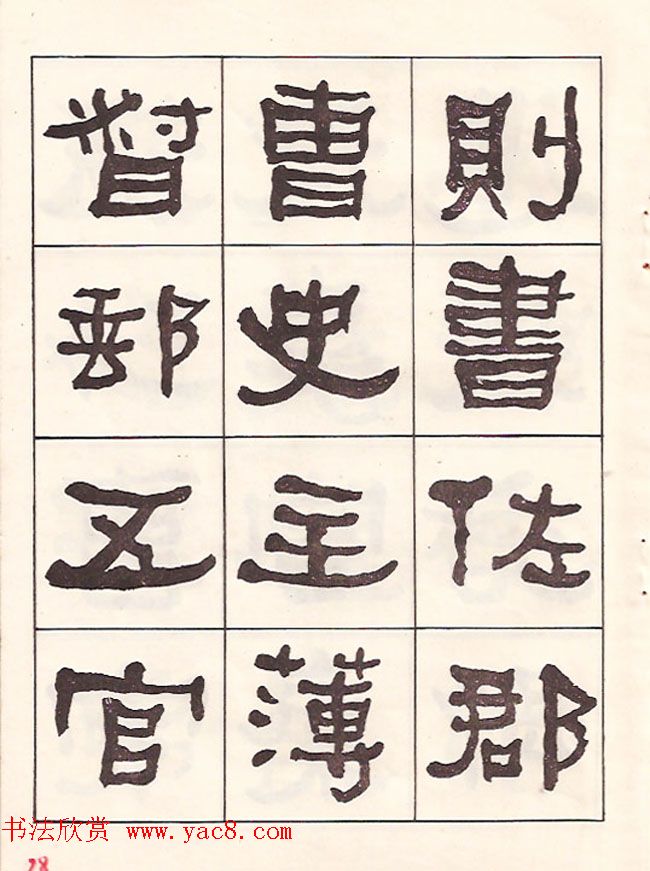 則書佐郡
曹史主薄
督郵五官
书法欣赏 www.yac8.com
28